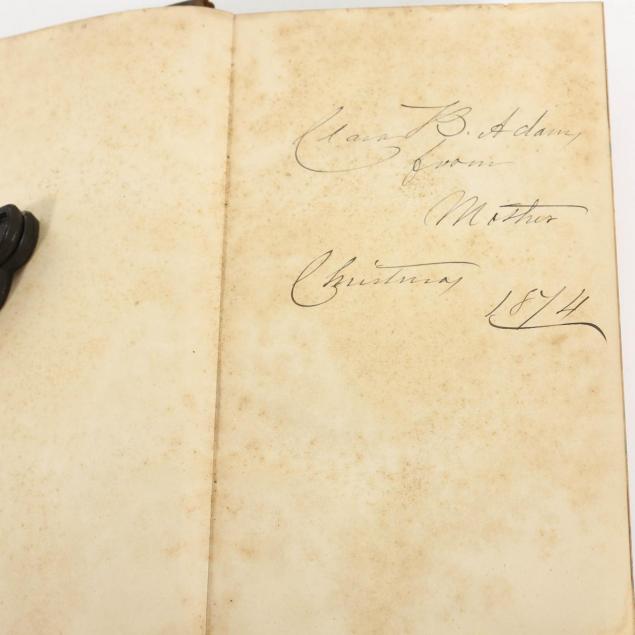 Clara B. Adams
from
Mother
Christmas
1874